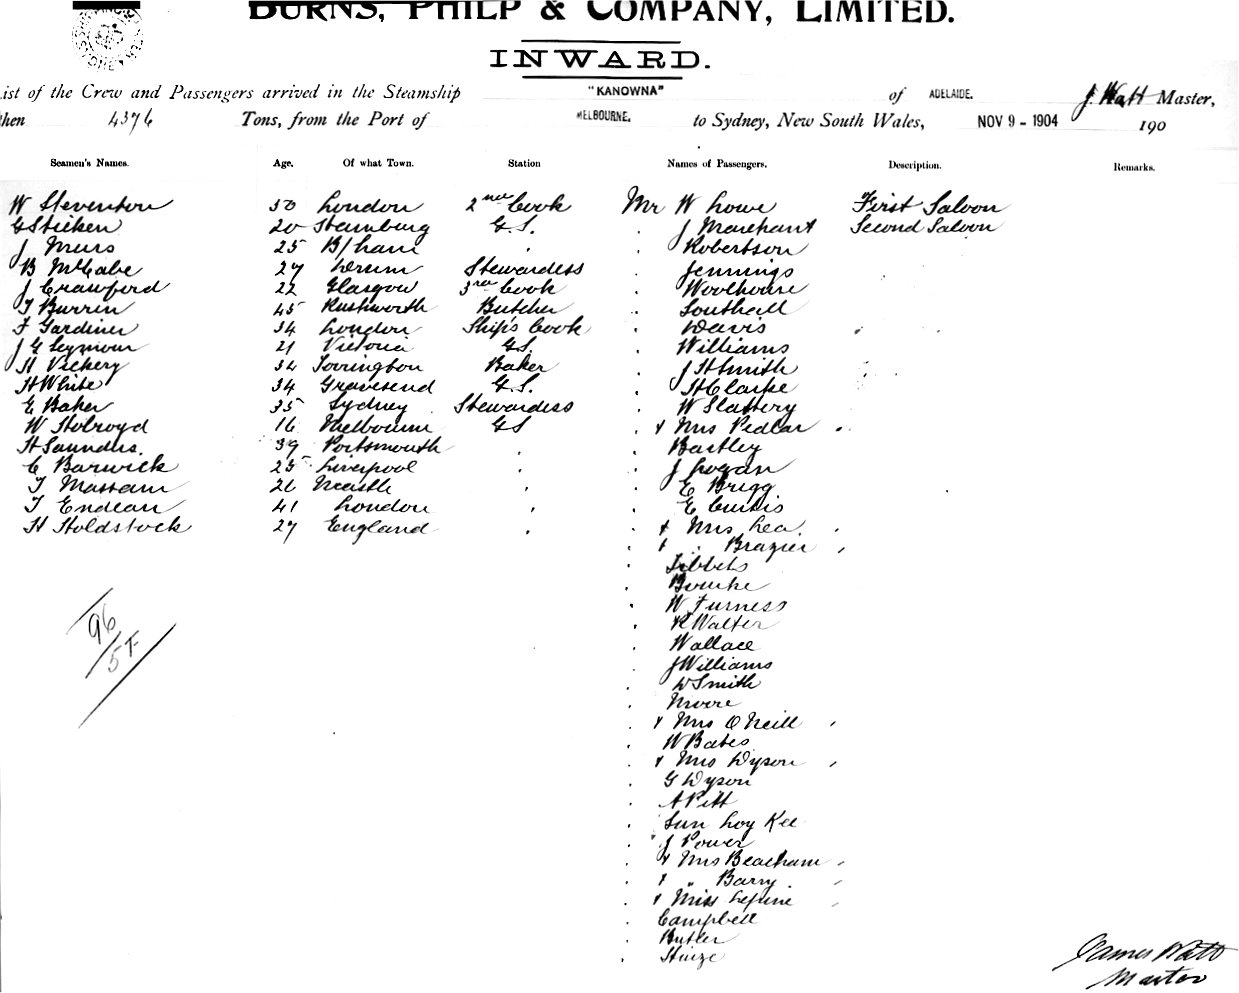 BURNS, PHILP & COMPANY, LIMITED.
INWARD.
List of the Crew and Passengers arrived in the Steamship "KANOWNA" of ADELAIDE. J. Watt Master,
then 4376 Tons, from the Port of MELBOURNE. to Sydney, New South Wales, NOV 9 - 1904 190
Seamen's Names. Age. Of what Town. Station Names of Passengers. Description. Remarks.
W Steventon 50 London 2nd Cook Mr W Lowe First Saloon
G Stieken 20 Hamburg G.S. " J Marchant Second Saloon
J Muis 25 B/ham " " Robertson
B McCabe 27 Stewardess " Jennings
J Crawford 22 Glasgow 3rd Cook " Woolhouse
T Burrin 45 Rushworth Butcher " Southall
F Gardiner 34 London Ship's Cook " Davis
J G Seymour 21 Victoria G.S. " Williams
H Vickery 34 Torrington Baker " J H Smith
H White 34 Gravesend G.S. " H Clarke
E Baker 35 Sydney Stewardess " W Slattery
W Holroyd 16 Melbourne GS " + Mrs Pedlar "
H Saunders. 39 Portsmouth " " Bastley
C Barwick 25 Liverpool " " J Logan
T Massam 26 Ncastle " " E Brigg
T Endean 41 London " " E Curtis
H Holdstock 27 England " " + Mrs Lea "
" + " Brazier "
" Tibbets
" Bourke
" W Furness
" R Walter
" Wallace
" J Williams
" W Smith
" Moore
" + Mrs O'Neill "
" W Bates
" + Mrs Dyson "
" G Dyson
" A Pitt
" Sun Loy Kee
" J Power
" + Mrs Beacham "
" + " Barry "
" + Miss "
" Campbell
" Butler
" Hinze
96
57
James Watt
Master